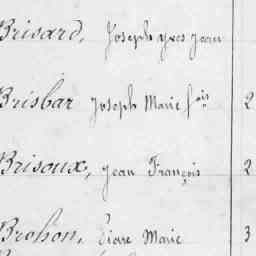 Brisard, Joseph Yves Jean
Brisbar Joseph Marie f.ois 2
Brisoux, Jean François 2
Brohon, Marie 3